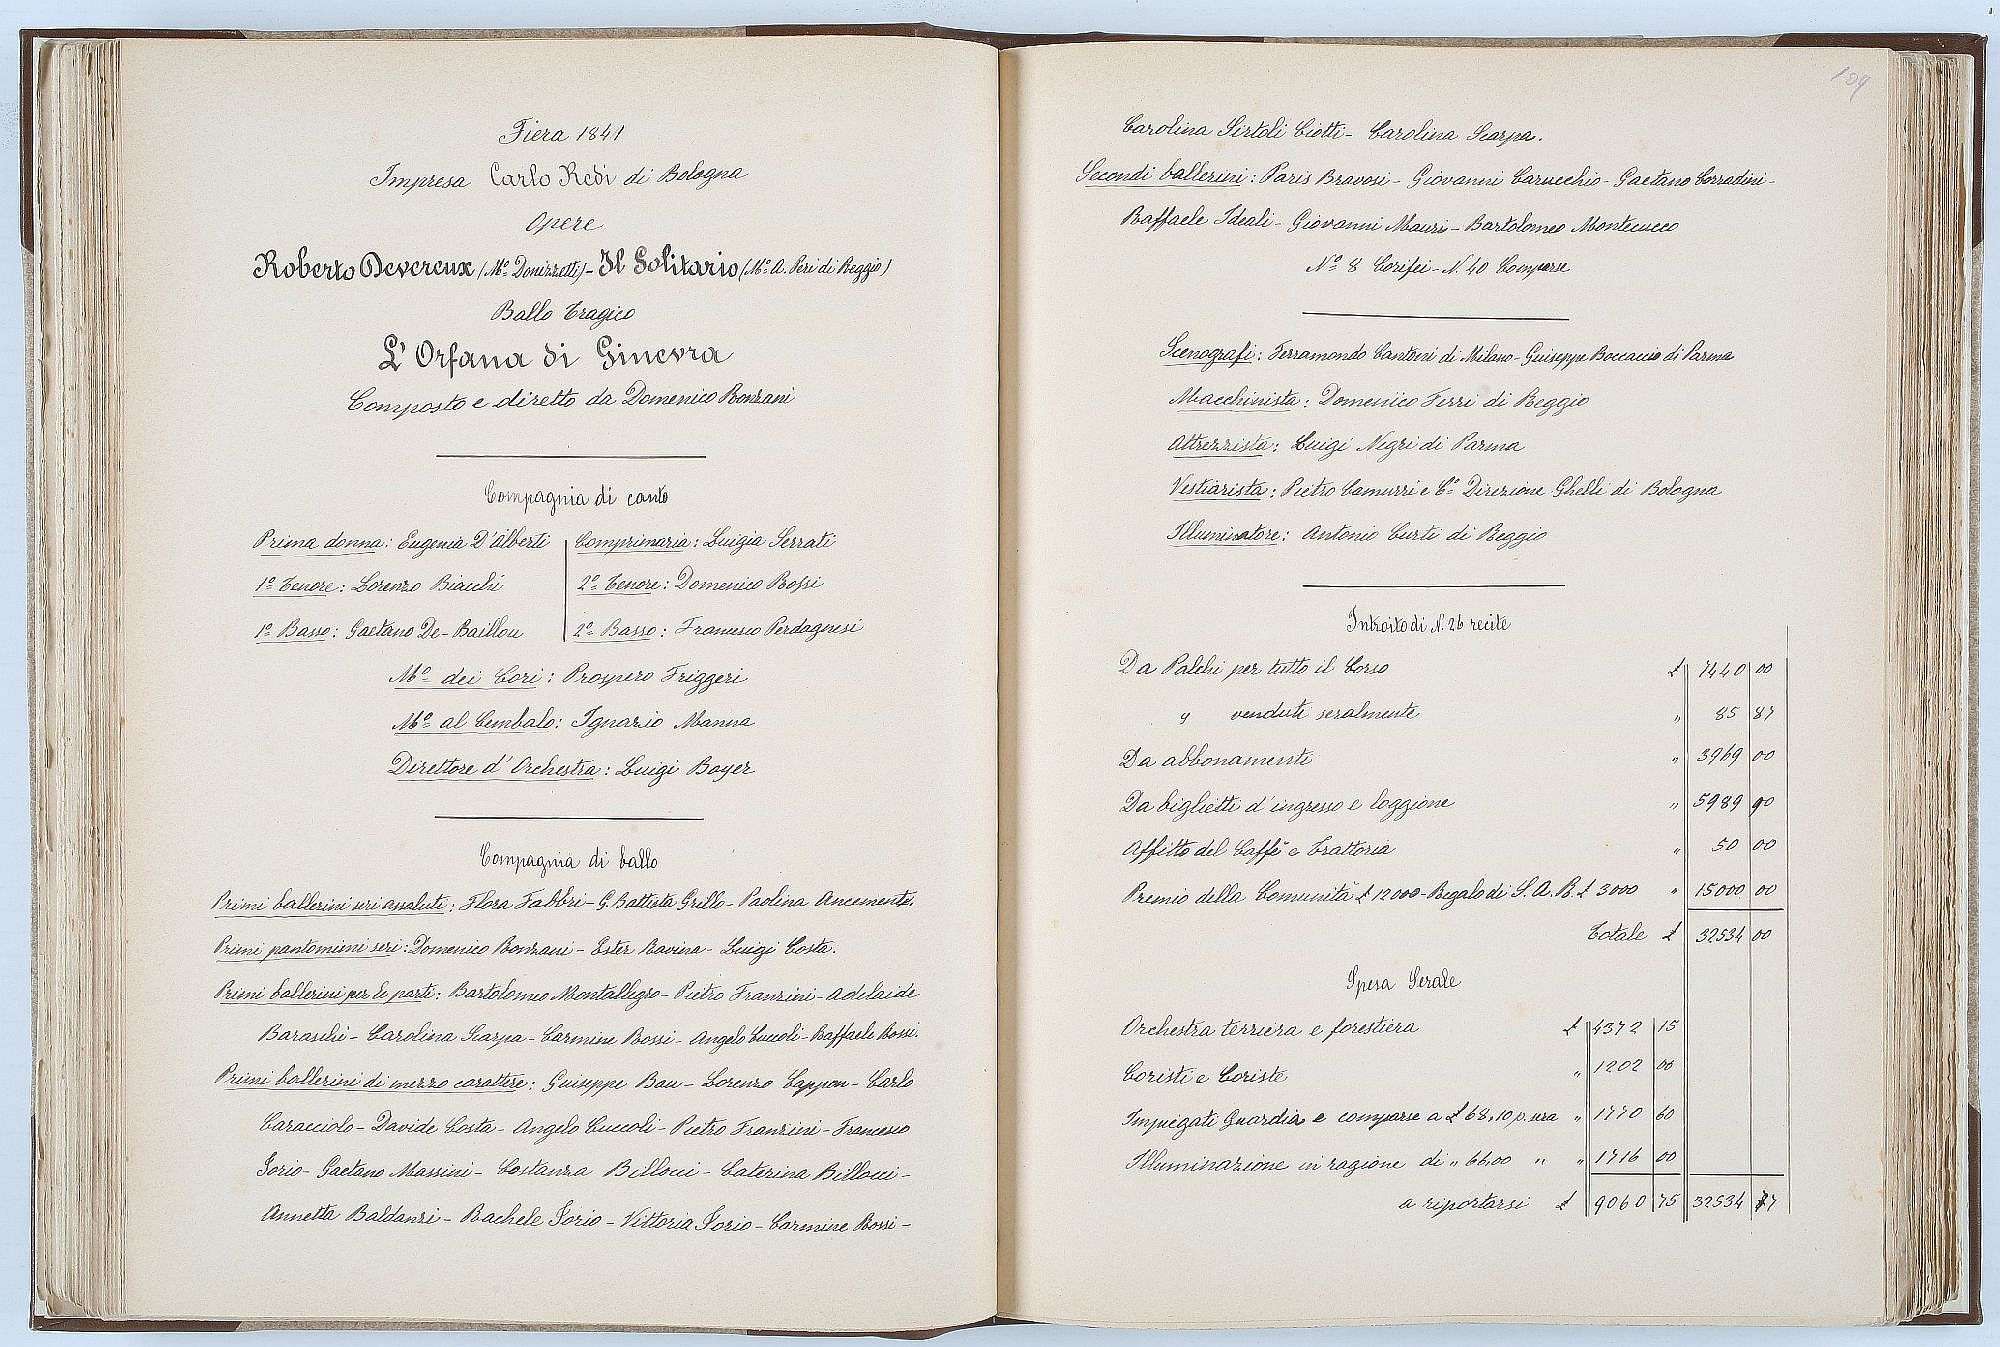 Fiera 1841
Impresa Carlo Redi di Bologna
Opere
Roberto Devereux (Mº Donizzetti) - Il Solitario (Mº A. Peri di Reggio)
Ballo Tragico
L'Orfana di Ginevra
Composto e diretto da Domenico Ronzani
Compagnia di canto
Prima donna: Eugenia D'Alberti
Comprimaria: Luigia Serrati
1º Tenore: Lorenzo Biacchi
2º Tenore: Domenico Rossi
1º Basso: Gaetano De-Baillou
2º Basso: Francesco Perdagnesi
Mº dei Cori: Prospero Friggeri
Mº al Cembalo: Ignazio Manna
Direttore d'Orchestra: Luigi Boyer
Compagnia di ballo
Primi ballerini seri assoluti: Flora Fabbri - G. Battista Grillo - Paolina Ancementi.
Primi pantomimi seri: Domenico Ronzani - Ester Ravina - Luigi Costa.
Primi ballerini per le parti: Bartolomeo Montallegro - Pietro Franzini - Adelaide
Baraschi - Carolina Scarpa - Carmine Rossi - Angelo Cuccoli - Raffaele Rossi.
Primi ballerini di mezzo carattere: Guiseppe Bau - Lorenzo Cappon - Carlo
Caracciolo - Davide Costa - Angelo Cuccoli - Pietro Franzini - Francesco
Iorio - Gaetano Massini - Costanza Billocci - Caterina Billocci -
Annetta Baldanzi - Rachele Iorio - Vittoria Iorio - Carmine Rossi -
109
Carolina Sirtoli Ciotti - Carolina Scarpa.
Secondi ballerini: Paris Bravosi - Giovanni Caruechio - Gaetano Corradini -
Raffaele Ideali - Giovanni Mauri - Bartolomeo Montecucco
Nº 8 Corifei - N. 40 Comparse
Scenografi: Ferramondo Cantoni di Milano - Guiseppe Boccaccio di Parma
Macchinista: Domenico Ferri di Reggio
Attrezzista: Luigi Negri di Parma
Vestiarista: Pietro Camurri e Cº Direzione Ghelli di Bologna
Illuminatore: Antonio Curti di Reggio
Introito di N. 26 recite
Da Palchi per tutto il Corso £ 7440 00
" venduti seralmente " 85 87
Da abbonamenti " 3969 00
Da biglietti d'ingresso e loggione " 5989 90
Affitto del Caffè e Trattoria " 50 00
Premio della Comunità £ 12000 - Regalo di S. A. R. £ 3000 " 15000 00
Totale £ 32534 00
Spesa Serale
Orchestra terriera e forestiera £ 4372 15
Coristi e Coriste " 1202 00
Impiegati Guardia e comparse a £ 68,10 p. sera " 1770 60
Illuminazione in ragione di " 66,00 " " 1716 00
a riportarsi £ 9060 75 32534 77